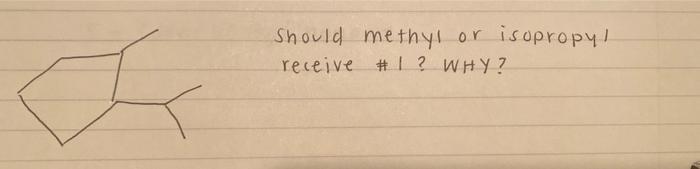 Should methyl or isopropyl
receive #1? WHY?